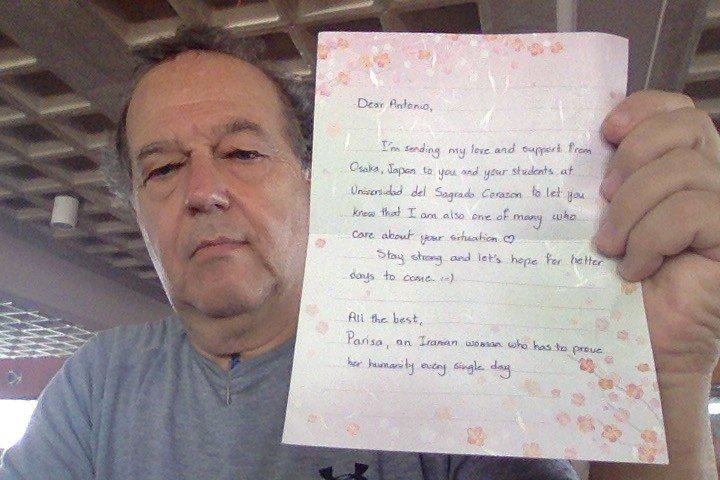 Dear Antonio,
I'm sending my love and support from
Osaka, Japan to you and your students at
Universidad del Sagrado Corazon to let you
know that I am also one of many who
care about your situation ♡
Stay strong and let's hope for better
days to come. :-)
All the best,
Parisa, an Iranian woman who has to prove
her humanity every single day